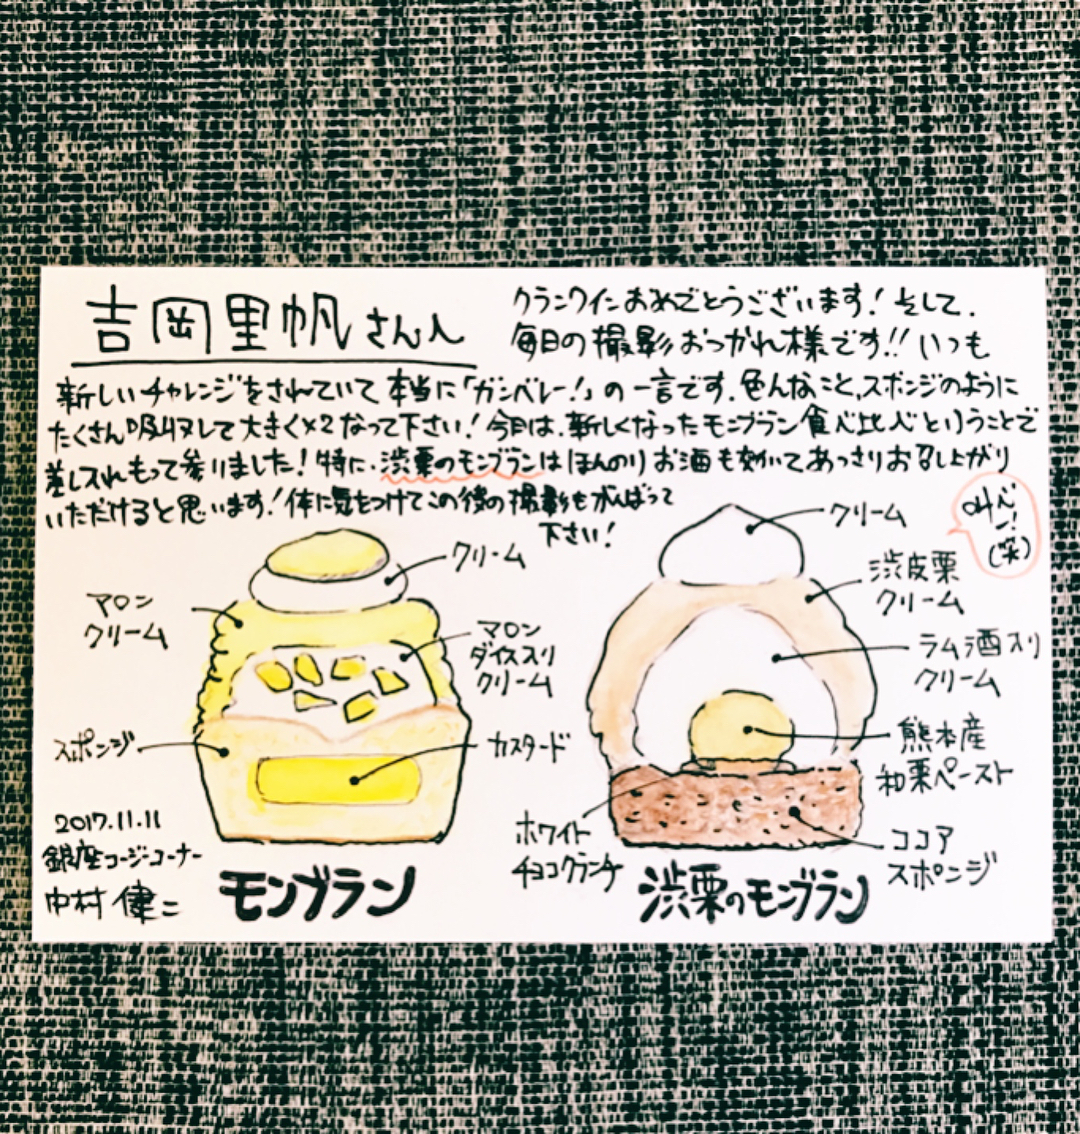 吉岡里帆さんへ
クランクインおめでとうございます！そして、
毎日の撮影おつかれ様です!! いつも
新しいチャレンジをされていて本当に「ガンバレー！」の一言です。色んなこと、スポンジのように
たくさん吸収して大きく×2なって下さい！今日は、新しくなったモンブラン食べ比べということで
差し入れもって参りました！特に、渋栗のモンブランはほんのりお酒も効いてあっさりお召し上がり
いただけると思います！体に気をつけてこの後の撮影もがんばって
下さい！
(笑)
クリーム
マロン
クリーム
マロン
ダイス入り
クリーム
スポンジ
カスタード
モンブラン
クリーム
渋皮栗
クリーム
ラム酒入り
クリーム
熊本産
和栗ペースト
ホワイト
チョコクランチ
ココア
スポンジ
渋栗のモンブラン
2017.11.11
銀座コージーコーナー
中村 健二